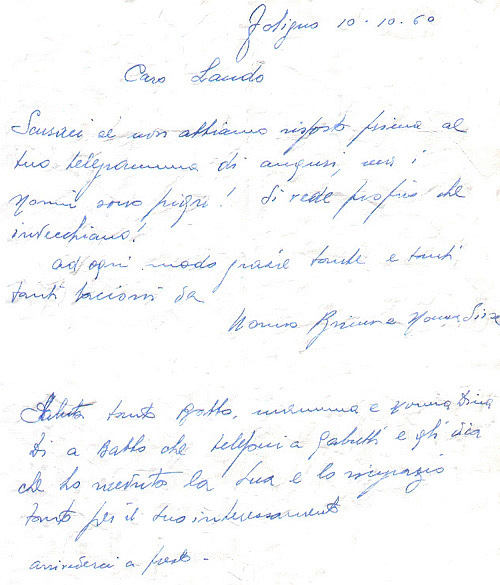 Foligno 10-10-60
Caro Lando
Scusaci se non abbiamo risposto prima al
tuo telegramma di auguri, ma i
nonni sono pigri! Si vede proprio che
invecchiano!
ad ogni modo grazie tante e tanti
tanti bacioni da
Nonno e Nonna
Saluta tanto Babbo, mamma e nonna Dina
Di a Babbo che telefoni a Gabutti e gli dica
che ho ricevuto la sua e lo ringrazio
tanto per il suo interessamento
arrivederci a presto.